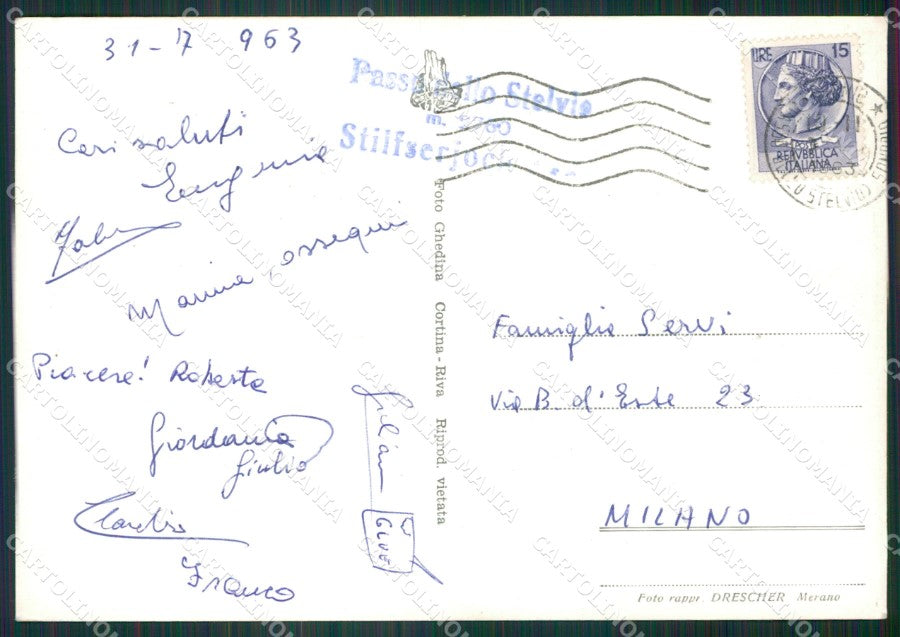 31-7 963
Cari saluti
Eugenia
Marina ossequi
Piacere! Roberta
Giordana
Giulio
Claudio
Franco
Passo dello Stelvio
m. 2760
Stilfserjoch
LIRE 15
POSTE
REPVBBLICA
ITALIANA
Foto Ghedina Cortina - Riva Riprod. vietata
Famiglia Servi
Via B. d'Este 23
MILANO
Foto rappr. DRESCHER Merano
CARTOLINOMANIA